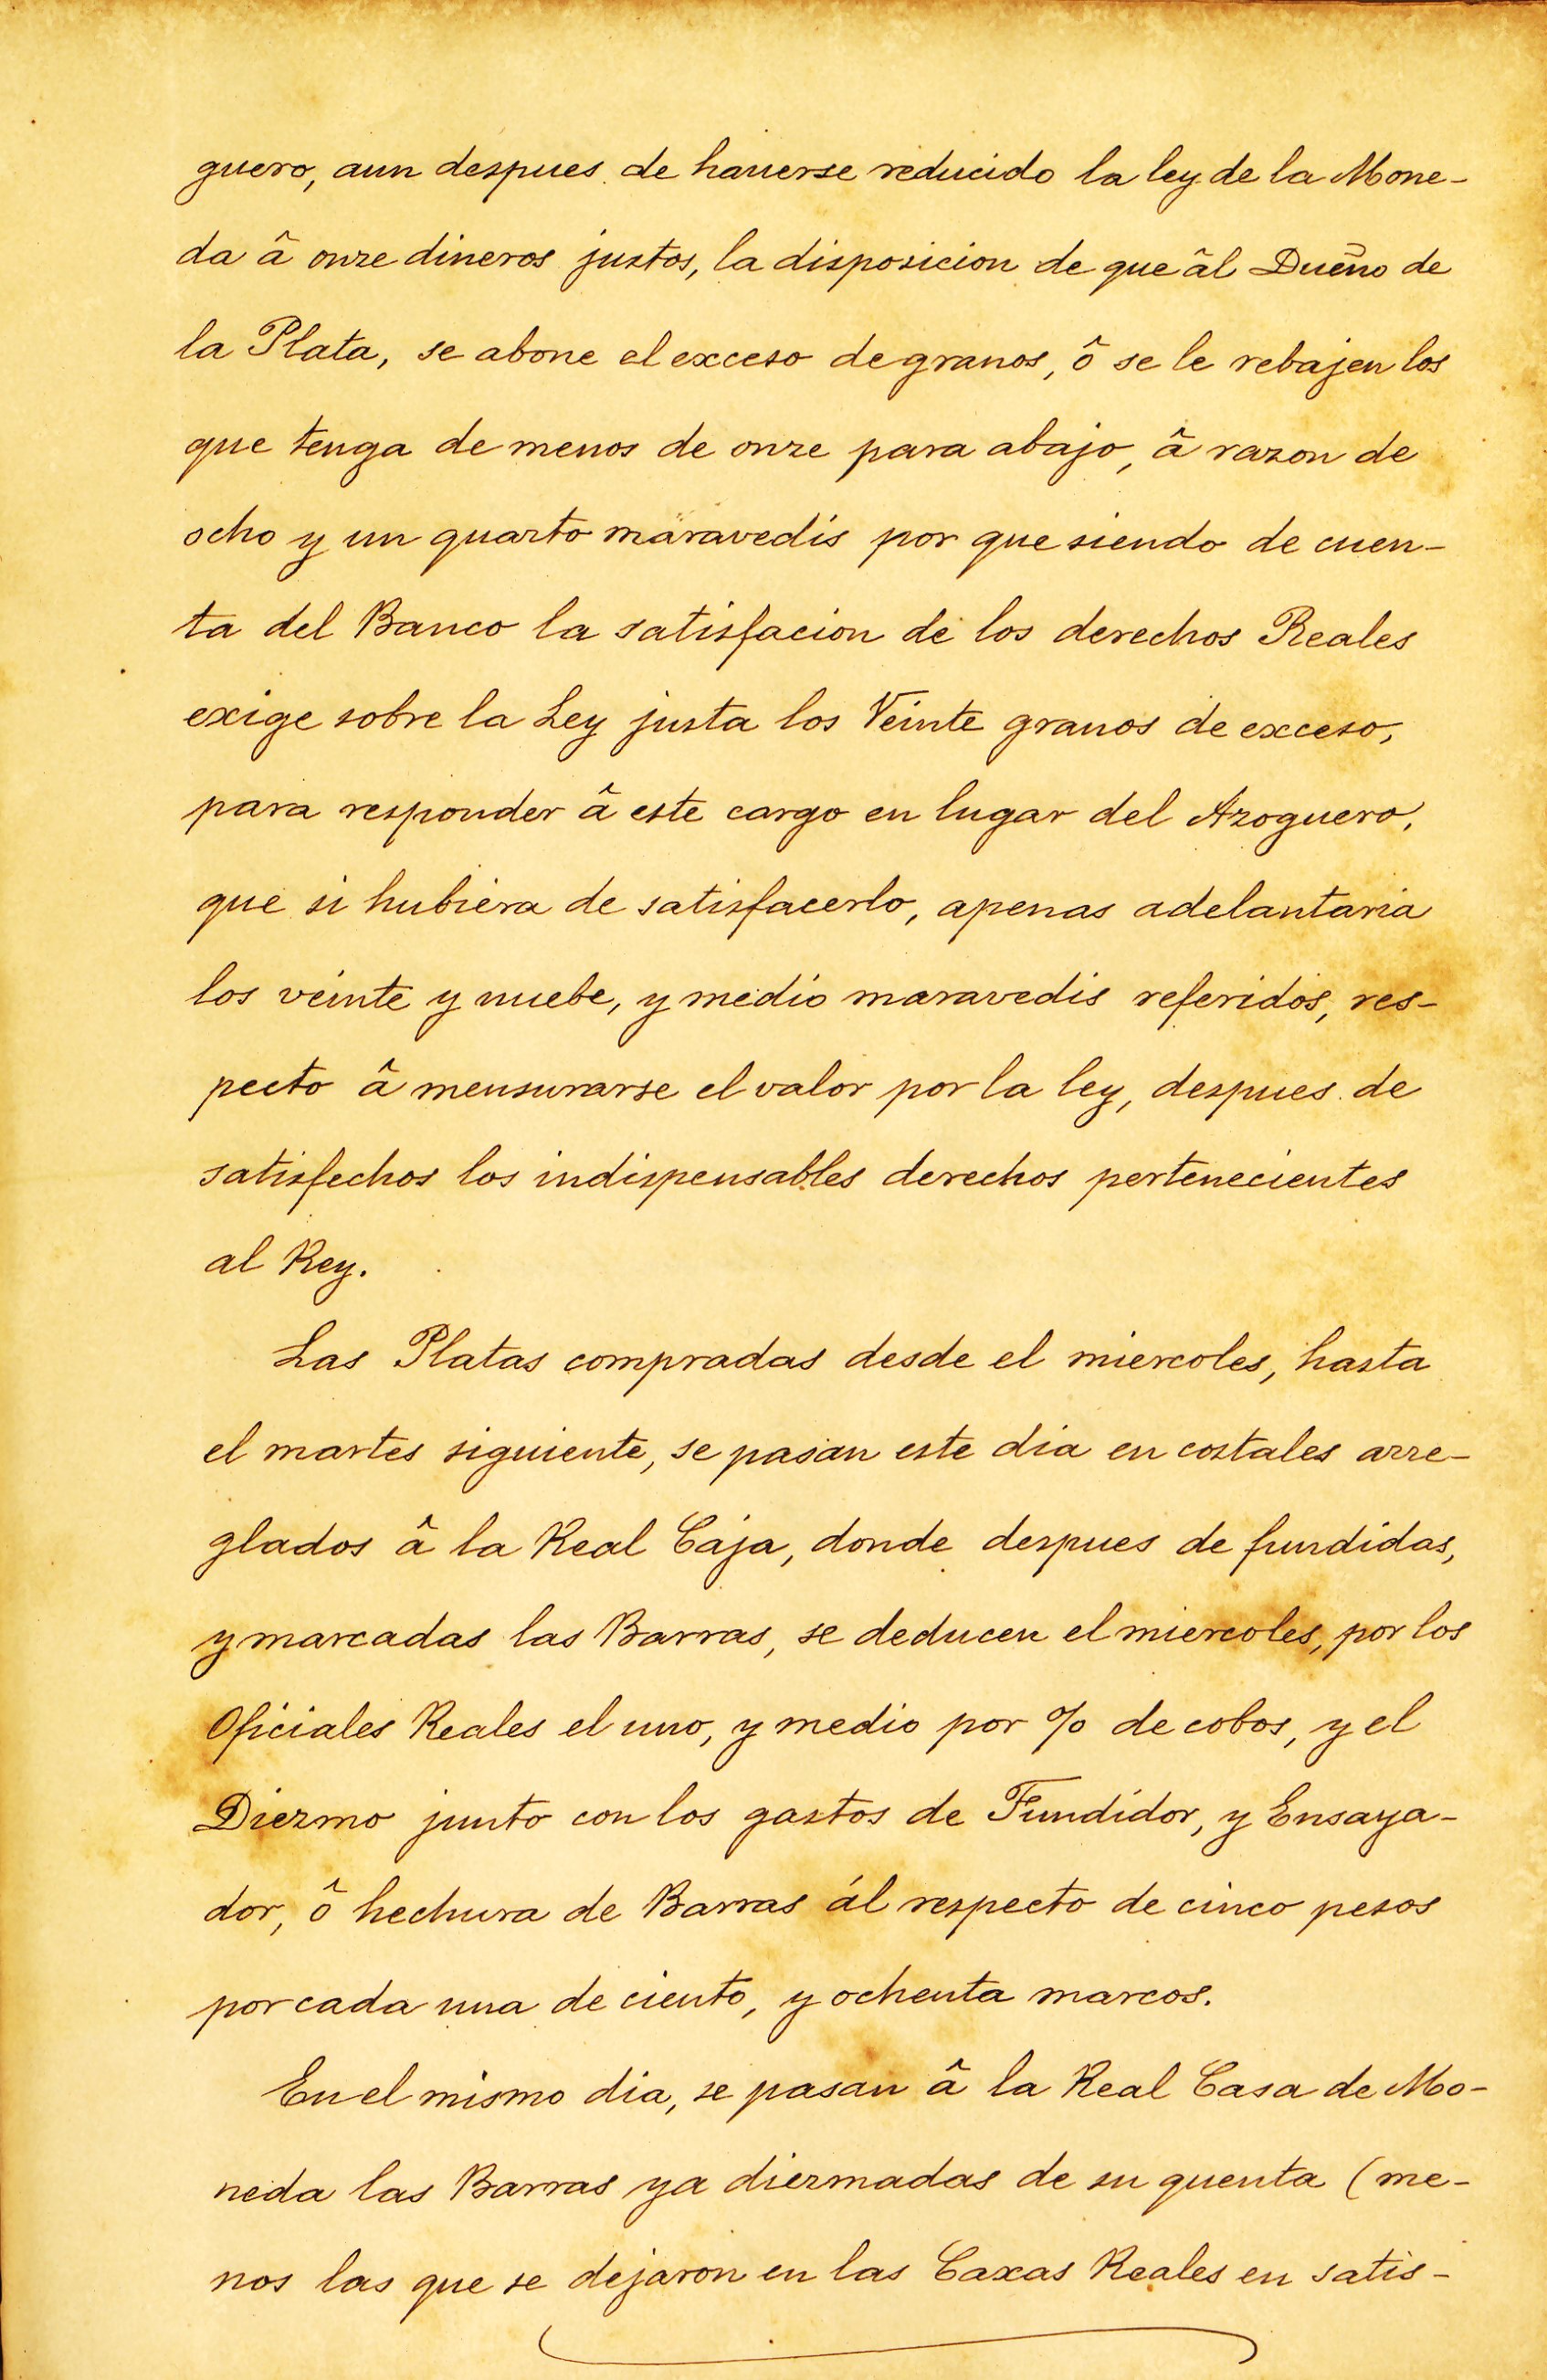 guero, aun despues de hauerse reducido la ley de la Mone-
da â onze dineros justos, la disposicion de que âl Dueño de
la Plata, se abone el exceso de granos, ô se le rebajen los
que tenga de menos de onze para abajo, â razon de
ocho y un quarto maravedis por que siendo de cuen-
ta del Banco la satisfacion de los derechos Reales
exige sobre la Ley justa los Veinte granos de exceso,
para responder â este cargo en lugar del Azoguero,
que si hubiera de satisfacerlo, apenas adelantaria
los veinte y nuebe, y medio maravedis referidos, res-
pecto â mensurarse el valor por la ley, despues de
satisfechos los indispensables derechos pertenecientes
al Rey.
Las Platas compradas desde el miercoles, hasta
el martes siguiente, se pasan este dia en costales arre-
glados â la Real Caja, donde despues de fundidas,
y marcadas las Barras, se deducen el miercoles, por los
Oficiales Reales el uno, y medio por % de cobos, y el
Diezmo junto con los gastos de Fundidor, y Ensaya-
dor, ô hechura de Barras ál respecto de cinco pesos
por cada una de ciento, y ochenta marcos.
En el mismo dia, se pasan â la Real Casa de Mo-
neda las Barras ya diezmadas de su quenta (me-
nos las que se dejaron en las Caxas Reales en satis-